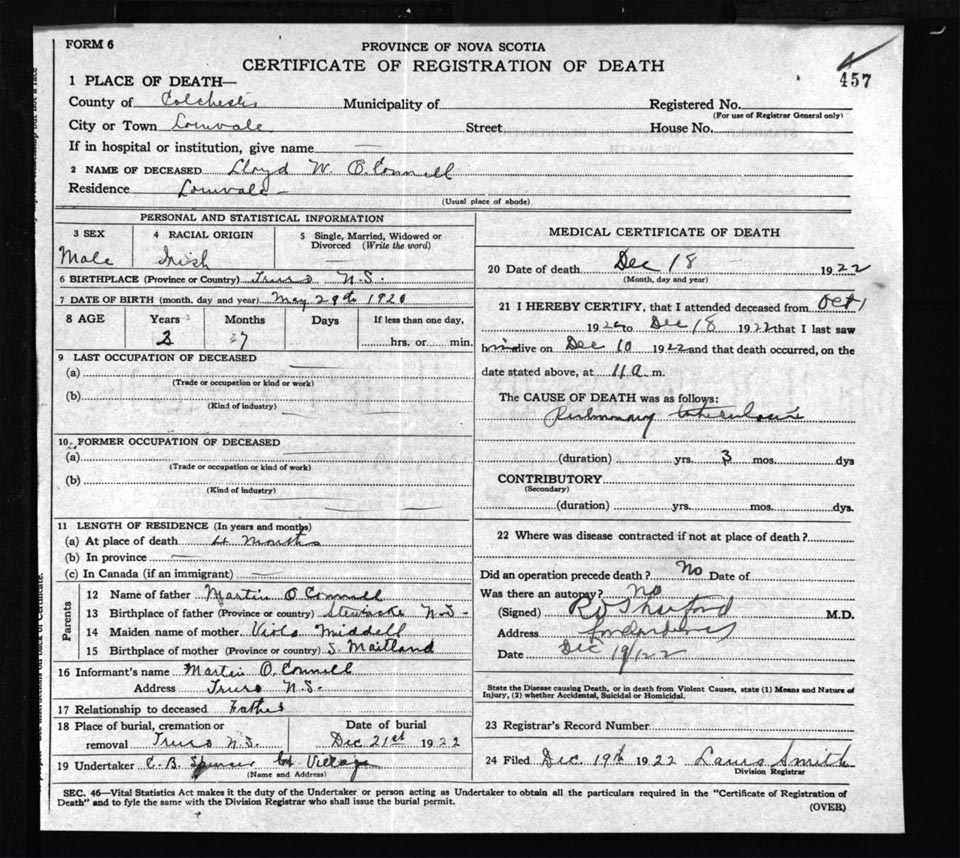 FORM 6
PROVINCE OF NOVA SCOTIA
CERTIFICATE OF REGISTRATION OF DEATH
457
1 PLACE OF DEATH—
County of Colchester Municipality of Registered No.
(For use of Registrar General only)
City or Town Lornvale Street House No.
If in hospital or institution, give name
2 NAME OF DECEASED Lloyd W. O.Connell
Residence Lornvale
(Usual place of abode)
PERSONAL AND STATISTICAL INFORMATION
3 SEX 4 RACIAL ORIGIN 5 Single, Married, Widowed or Divorced (Write the word)
Male Irish
6 BIRTHPLACE (Province or Country) Truro N.S.
7 DATE OF BIRTH (month, day and year) May 29th 1920
8 AGE Years Months Days If less than one day,
2 7 hrs. or min.
9 LAST OCCUPATION OF DECEASED
(a)
(Trade or occupation or kind or work)
(b)
(Kind of industry)
10 FORMER OCCUPATION OF DECEASED
(a)
(Trade or occupation or kind of work)
(b)
(Kind of industry)
11 LENGTH OF RESIDENCE (In years and months)
(a) At place of death Months
(b) In province
(c) In Canada (if an immigrant)
Parents
12 Name of father Martin O Connell
13 Birthplace of father (Province or country) Stewiacke N.S.
14 Maiden name of mother Viola
15 Birthplace of mother (Province or country) S. Maitland
16 Informant's name Martin O.Connell
Address Truro N.S.
17 Relationship to deceased Father
18 Place of burial, cremation or Date of burial
removal Truro N.S. Dec 21st 1922
19 Undertaker C. B. Spencer Village
(Name and Address)
MEDICAL CERTIFICATE OF DEATH
20 Date of death Dec 18 1922
(Month, day and year)
21 I HEREBY CERTIFY, that I attended deceased from Oct 1
1922 to Dec 18 1922 that I last saw
him alive on Dec 10 1922 and that death occurred, on the
date stated above, at 11 a. m.
The CAUSE OF DEATH was as follows:
Pulmonary tuberculosis
(duration) yrs. 3 mos. dys
CONTRIBUTORY
(Secondary)
(duration) yrs. mos. dys.
22 Where was disease contracted if not at place of death?
Did an operation precede death? No Date of
Was there an autopsy? No
(Signed) M.D.
Address
Date Dec 19/22
State the Disease causing Death, or in death from Violent Causes, state (1) Means and Nature of
Injury, (2) whether Accidental, Suicidal or Homicidal.
23 Registrar's Record Number
24 Filed Dec. 19th 1922 Smith
Division Registrar
SEC. 46—Vital Statistics Act makes it the duty of the Undertaker or person acting as Undertaker to obtain all the particulars required in the "Certificate of Registration of
Death" and to fyle the same with the Division Registrar who shall issue the burial permit.
(OVER)